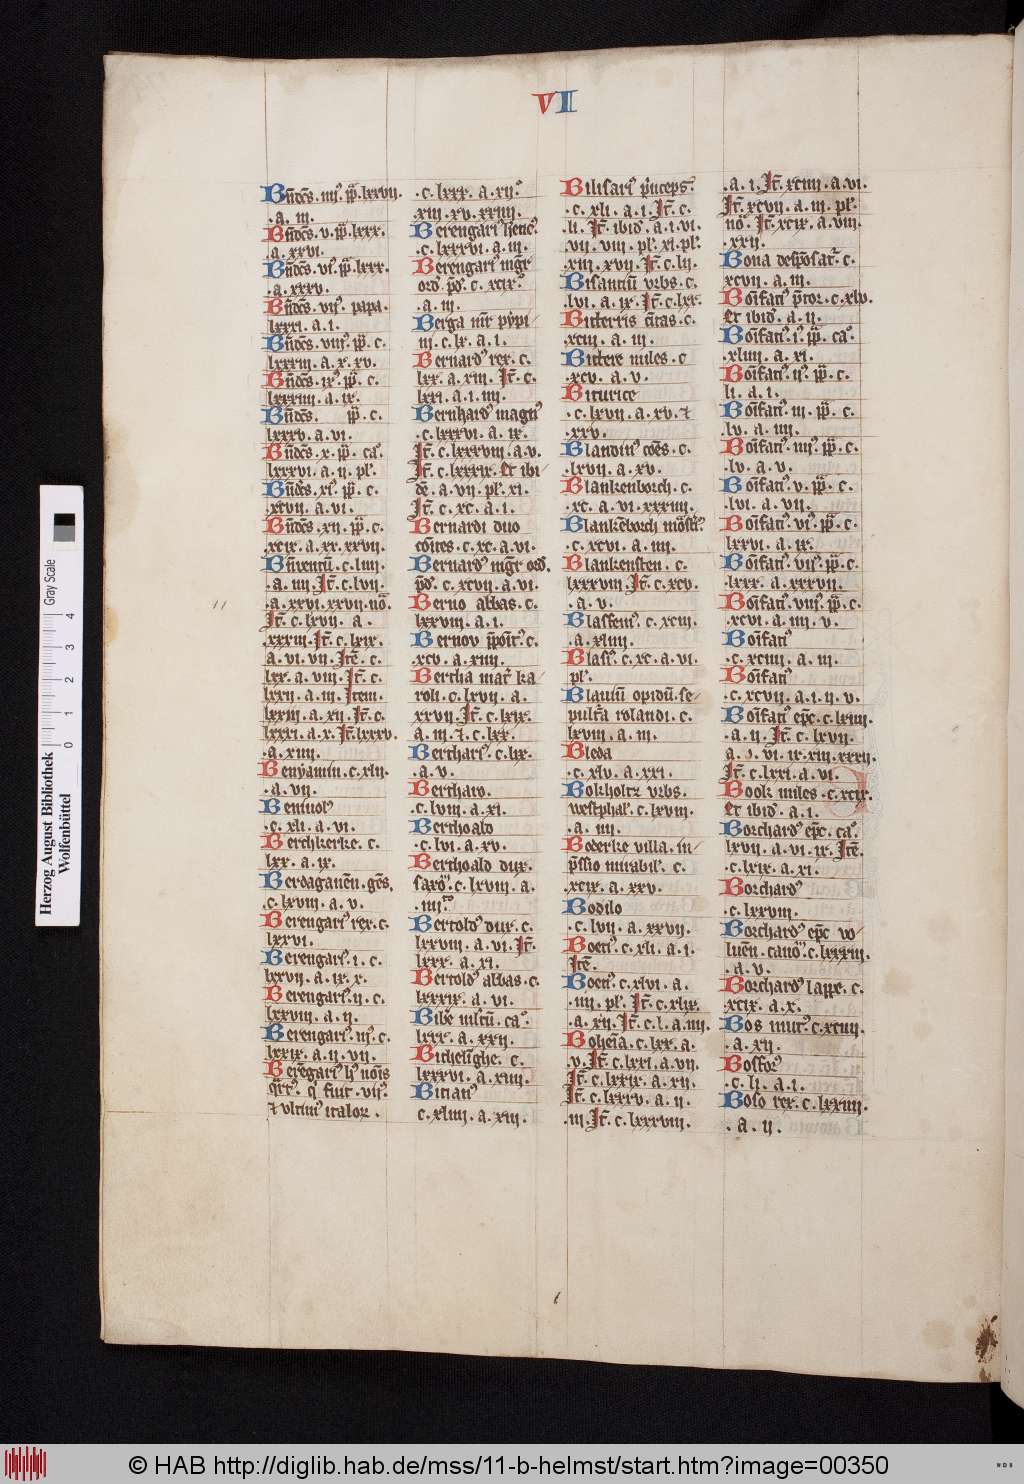 VII
Bn̄dc̄s. iiii⁹. pp̄. lxxvii.
.a. iii.
Bn̄dc̄s. v. pp̄. lxxx.
.a. xxvi.
Bn̄dc̄s. vi⁹. pp̄. lxxx.
.a. xxxv.
Bn̄dc̄s. vii⁹. papa.
lxxxi. a. i.
Bn̄dc̄s. viii⁹. pp̄. c.
lxxxiii. a. x. xv.
Bn̄dc̄s. ix⁹. pp̄. c.
lxxxiiii. a. ix.
Bn̄dc̄s. pp̄. c.
lxxxv. a. vi.
Bn̄dc̄s. x. pp̄. ca⁰.
lxxxvi. a. ii. pl⁹.
Bn̄dc̄s. xi⁹. pp̄. c.
.xcvii. a. vi.
Bn̄dc̄s. xii. pp̄. c.
.xcix. a. xx. xxvii.
Bn̄ventū. c. liiii.
.a. iiii. It̄. c. lvii.
.a. xxvi. xxvii. nō.
It̄. c. lxvii. a.
.xxxiii. It̄. c. lxix.
a. vi. vii. Itē. c.
lxx. a. viii. It̄. c.
lxxii. a. iii. Item.
lxxiii. a. xii. It̄. c.
lxxxi. a. x. It̄. lxxxv.
.a. xiiii.
Benyamin. c. xlii.
.a. vii.
Benivol⁹
.c. xli. a. vi.
Berchkerke. c.
lxx. a. ix.
Berdaganen̄. gēs.
.c. lxviii. a. v.
Berengari⁹ rex. c.
lxxvi.
Berengari⁹. i. c.
lxxvii. a. ix. x.
Berengari⁹. ii. c.
lxxviii. a. ii.
Berengari⁹. iii⁹. c.
lxxix. a. ii. vii.
Berēgari⁹ h⁹ nōis
qrt⁹. q̄ fuit. vii⁹.
⁊ vltim⁹ italor.
.c. lxxx. a. xii⁹.
xiii. xv. xxiiii.
Berengari⁹
.c. lxxxvi. a. iii.
Berengari⁹ mḡr
ord̄. pd̄. c. xcix⁹.
.a. iii.
Berga mr̄ pypi
ni. c. lx. a. i.
Bernard⁹ rex. c.
lxx. a. xiii. It̄. c.
lxxi. a. i. iiii.
Bernhard⁹ magn⁹
.c. lxxxvi. a. ix.
It̄. c. lxxxviii. a. v.
It̄. c. lxxxix. Et ibi
dē. a. vii. pl⁹. xi.
It̄. c. xc. a. i.
Bernardi duo
comites. c. xc. a. vi.
Bernard⁹ mḡr ord̄.
pd̄. c. xcvii. a. vi.
Berno abbas. c.
lxxviii. a. i.
Bernov
.xcv. a. xiiii.
Bertha mat̄ ka
roli. c. lxvii. a.
xxvii. It̄. c. lxix.
a. iii. ⁊. c. lxx.
Berthari⁹. c. lix.
.a. v.
Berthario.
.c. lviii. a. xi.
Berthoald
.c. lvi. a. xv.
Berthoald dux.
saxō. c. lxviii. a.
.iiii.
Bertold⁹ dux. c.
lxxviii. a. vi. It̄.
lxxx. a. xi.
Bertold⁹ abbas. c.
lxxxix. a. vi.
Bibe viscū. ca⁰.
lxxx. a. xxii.
Bichelīghe. c.
lxxxvi. a. xiiii.
Bician⁹
c. xliiii. a. xiii.
Bilisari⁹ p̄nceps.
.c. xli. a. i. It̄. c.
.li. It̄. ibid̄. a. i. vi.
vii. viii. pl⁹. xi. pl⁹.
xiii. xvii. It̄. c. lii.
Bisantiū vrbs. c.
.lvi. a. ix. It̄. c. lxx.
Bicterris cītas. c.
xciii. a. iii.
Bictere miles. c
.xcv. a. v.
Biturice
.c. lxvii. a. xv. ⁊
.xxv.
Blandin⁹ comēs. c.
.lxvii. a. xv.
Blankenborch. c.
.xc. a. vi. xxxiiii.
Blankēborch mōst⁹.
.c. xcvi. a. iiii.
Blankensten. c.
lxxxviii. It̄. c. xcv.
.a. v.
Blasfem⁹. c. xciii.
.a. xliiii.
Blasi⁹. c. xc. a. vi.
pl⁹.
Blaviū opidū. se
pulta rolandi. c.
lxviii. a. iii.
Bleda
.c. xlv. a. xxi.
Bokholtz vrbs.
westphal⁹. c. lxviii.
.a. iiii.
Boderke villa. in
p̄ssio mirabil⁹. c.
.xcix. a. xxv.
Bodilo
.c. lvii. a. xxvii.
Boeti⁹. c. xli. a. i.
Itē.
Boeti⁹. c. xlvi. a.
.iiii. pl⁹. It̄. c. xlix.
.a. xii. It̄. c. l. a. iiii.
Bohemia. c. lxx. a.
.v. It̄. c. lxxi. a. vii.
It̄. c. lxxix. a. xii.
It̄. c. lxxxv. a. ii.
.iii. It̄. c. lxxxviii.
.a. i. It̄. xciiii. a. vi.
It̄. xcvii. a. iii. pl⁹.
nō. It̄. xcix. a. viii.
.xxii.
Bona desponsat⁹. c.
xcvii. a. iii.
Bonifati⁹ p̄tor. c. xlv.
Et ibid̄. a. ii.
Bonifati⁹. i⁹. pp̄. ca⁰.
.xliiii. a. xi.
Bonifati⁹. ii⁹. pp̄. c.
li. a. i.
Bonifati⁹. iii. pp̄. c.
.lv. a. iiii.
Bonifati⁹. iiii⁹. pp̄. c.
.lv. a. v.
Bonifati⁹. v. pp̄. c.
.lvi. a. vii.
Bonifati⁹. vi⁹. pp̄. c.
lxxvi. a. ix.
Bonifati⁹. vii⁹. pp̄. c.
.lxxx. a. xxxvii.
Bonifati⁹. viii⁹. pp̄. c.
.xcvi. a. iiii. v.
Bonifati⁹
.c. xciiii. a. iii.
Bonifati⁹
.c. xcvii. a. i. ii. v.
Bonifati⁹ ep̄c. c. lxiiii.
.a. ii. It̄. c. lxvii.
a. vi. ix. xiii. xxxii.
It̄. c. lxxi. a. vi.
Book miles. c. xcix.
Et ibid̄. a. i.
Borchard⁹ ep̄c. ca⁰.
lxvii. a. vi. ix. Itē.
.c. lxix. a. xi.
Borchard⁹
.c. lxxviii.
Borchard⁹ ep̄c vo
luen̄. canō. c. lxxxiii.
.a. v.
Borchard⁹ lappe. c.
.xcix. a. x.
Bos mut⁹. c. xciiii.
.a. xii.
Bosfor⁹
.c. li. a. i.
Boso rex. c. lxxiiii.
.a. ii.
11
6
Herzog August Bibliothek
Wolfenbüttel
Gray Scale
0 1 2 3 4
© HAB http://diglib.hab.de/mss/11-b-helmst/start.htm?image=00350